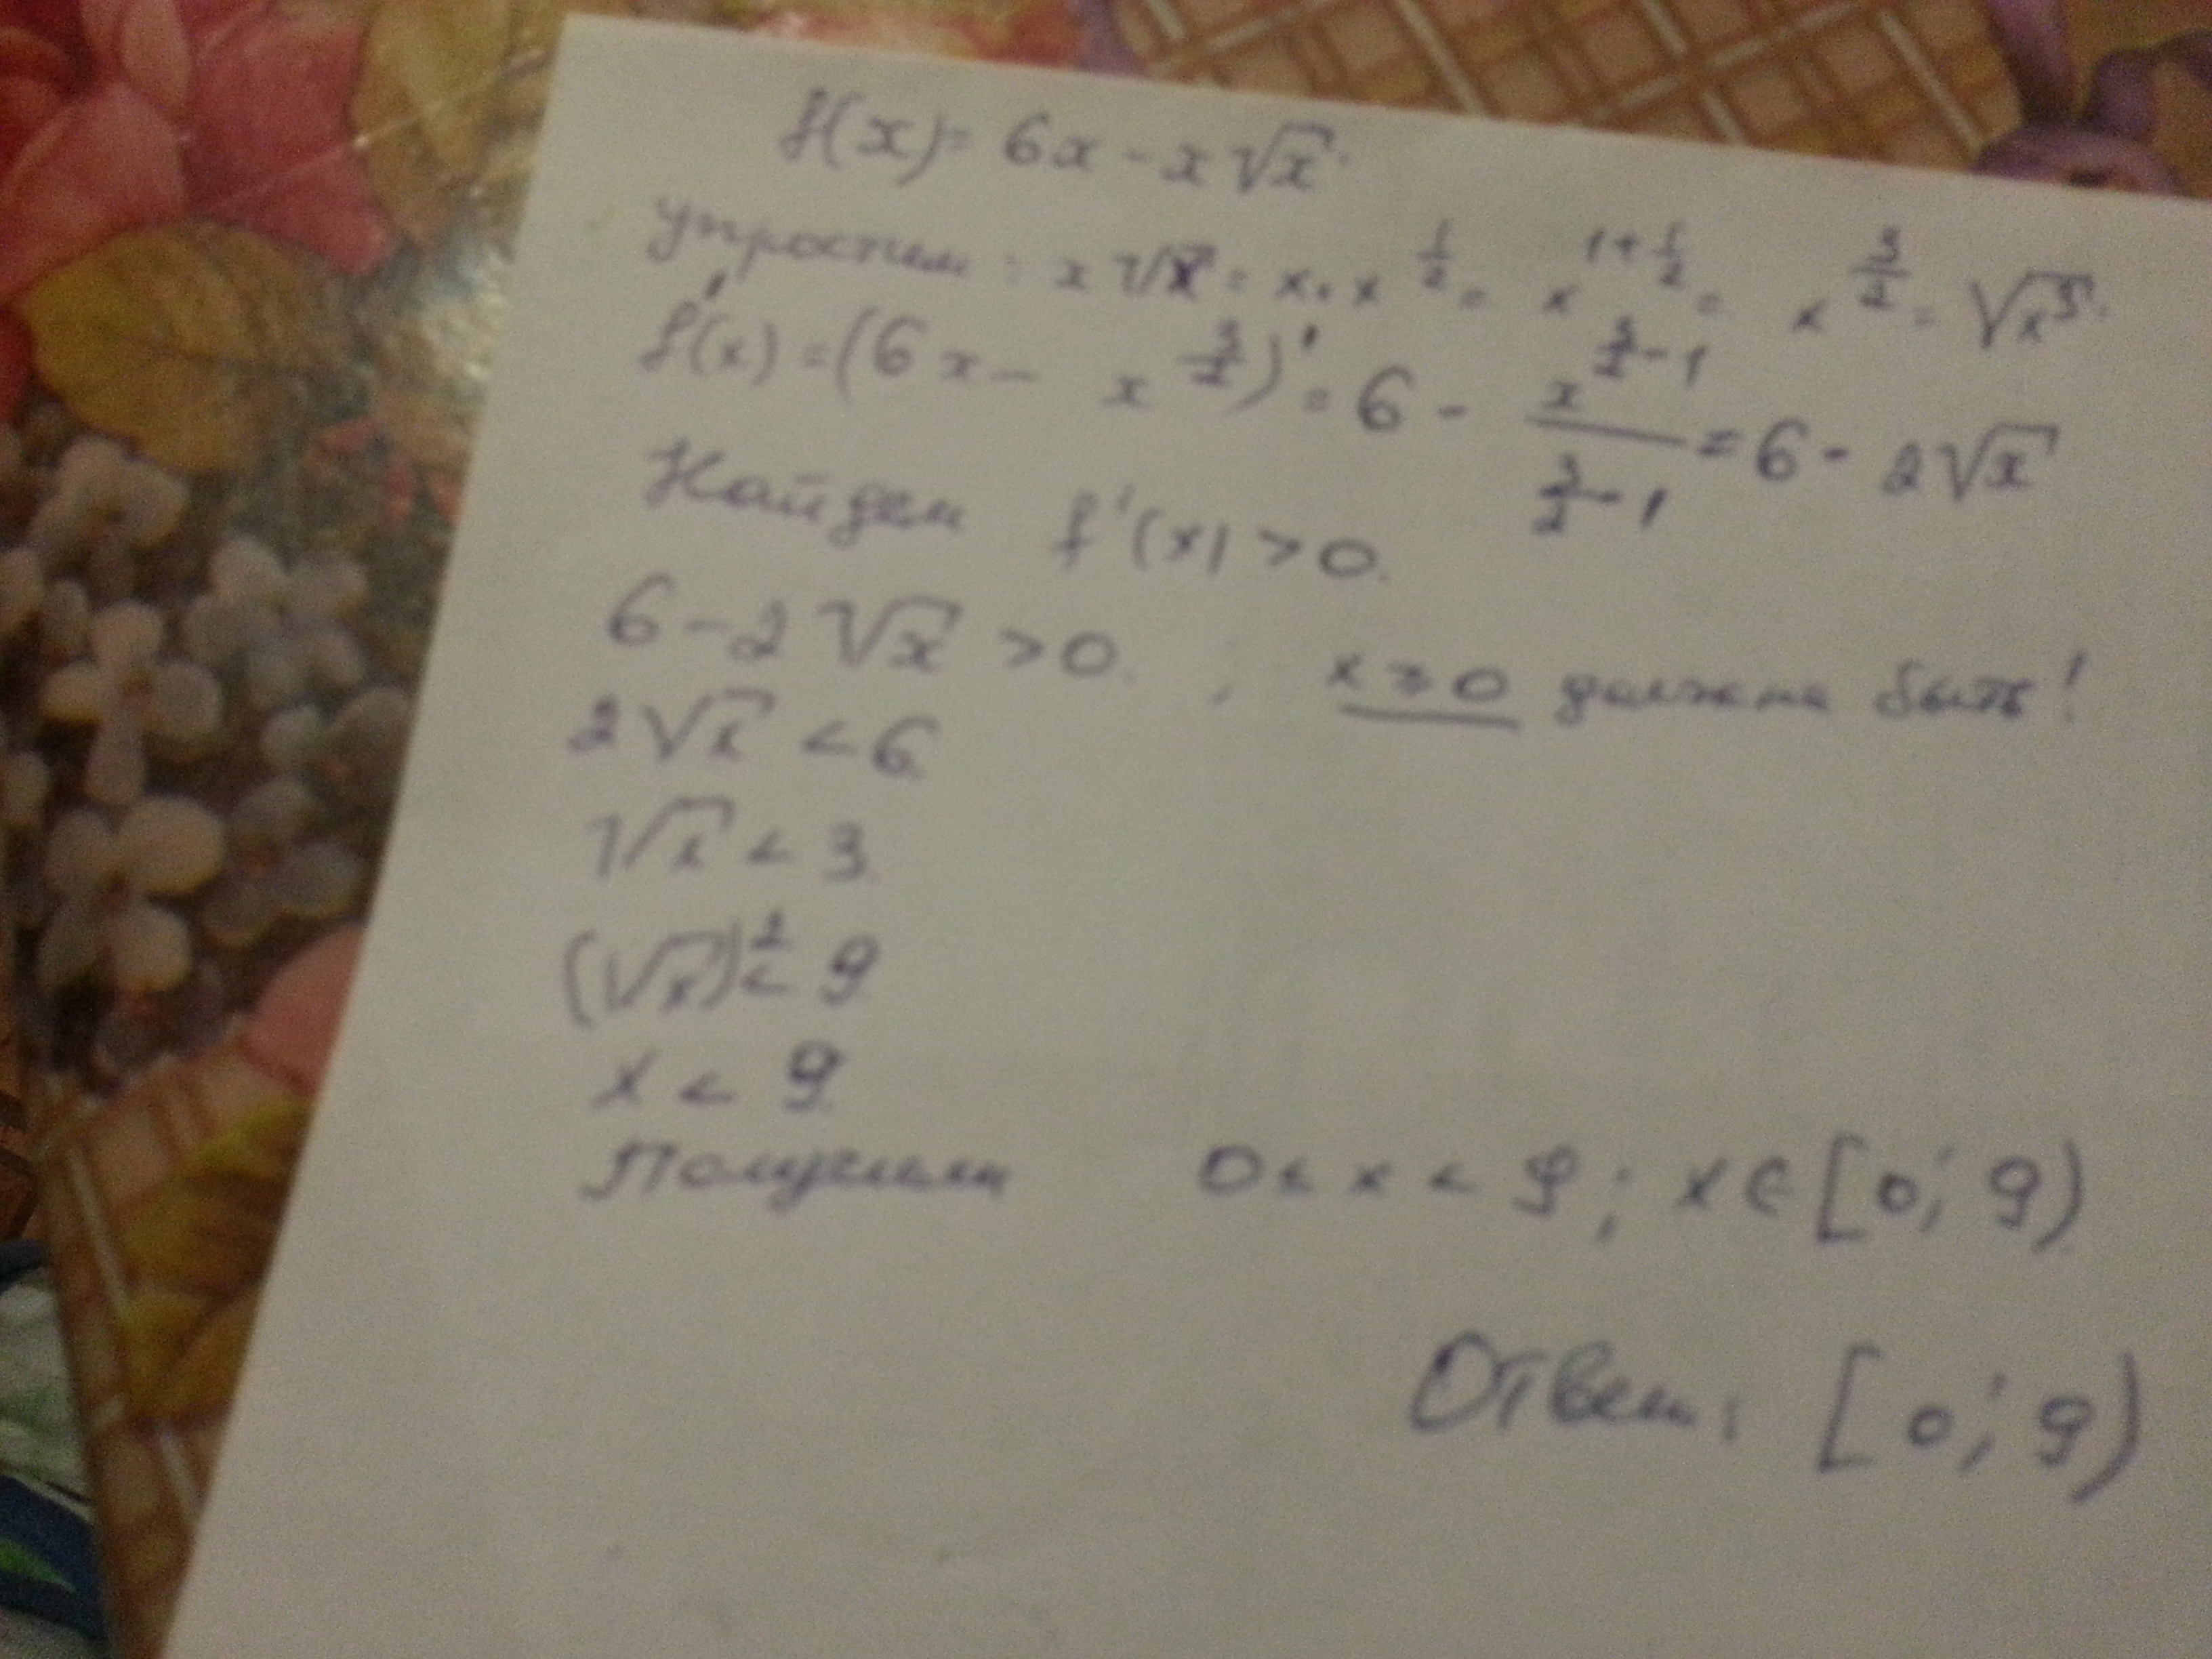 f(x) = 6x - x√x.
упростим: x√x = x · x^{1/2} = x^{1+1/2} = x^{3/2} = √x³.
f'(x) = (6x - x^{3/2})' = 6 - \frac{x^{3/2 - 1}}{3/2 - 1} = 6 - 2√x
Найдем f'(x) > 0.
6 - 2√x > 0. ; x ≥ 0 должно быть!
2√x < 6
√x < 3
(√x)² < 9
x < 9
Получили 0 ≤ x < 9; x ∈ [0; 9)
Ответ: [0; 9)